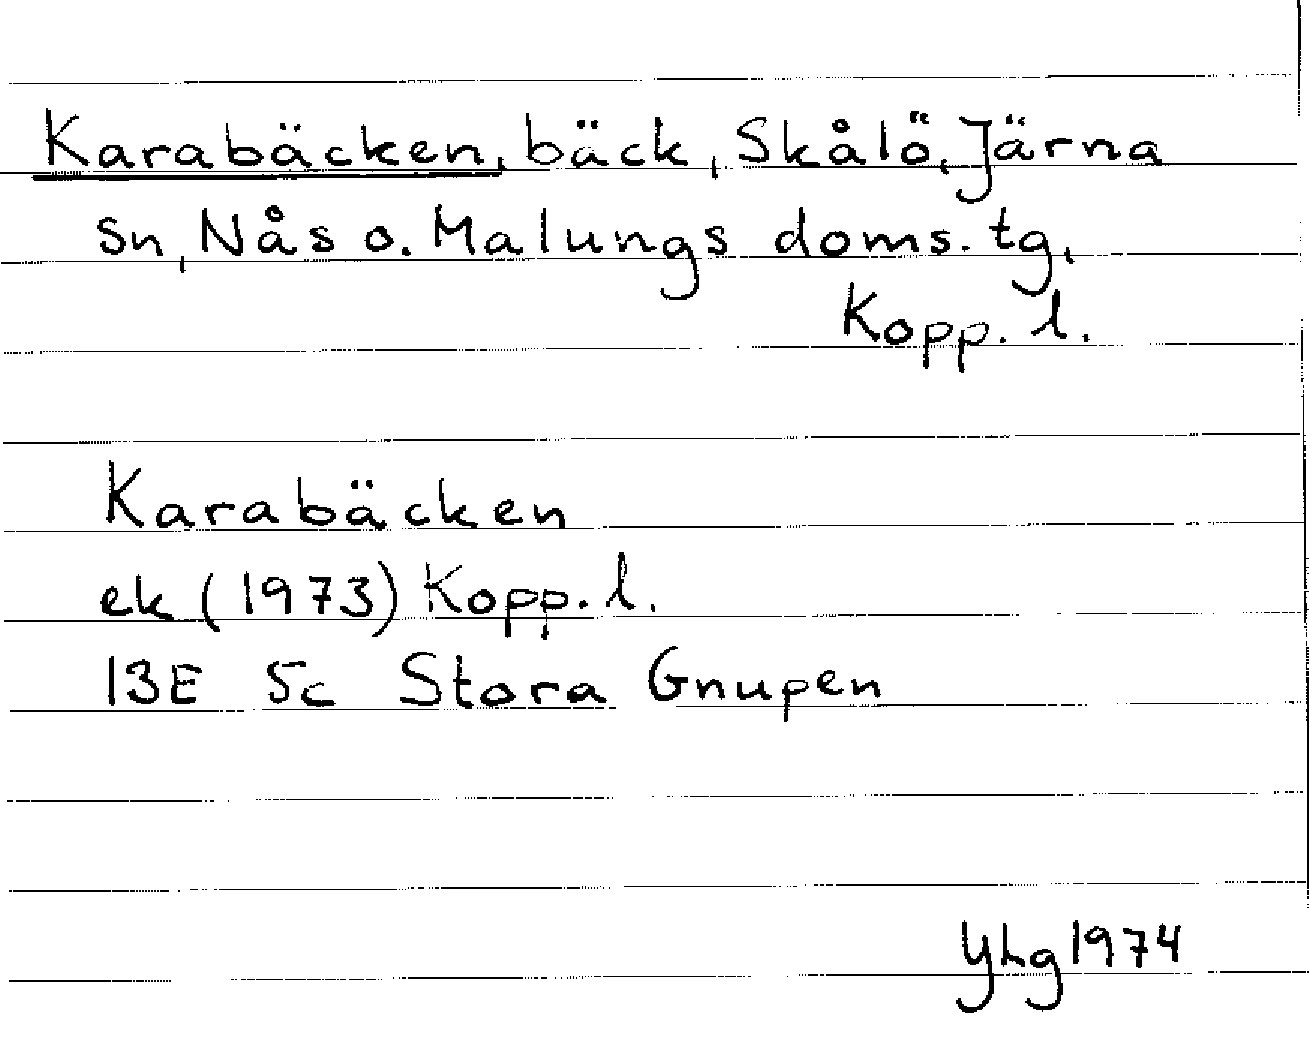 Karabäcken, bäck, Skålö, Järna
sn, Nås o. Malungs doms. tg,
Kopp. l.
Karabäcken
ek (1973) Kopp. l.
13E 5c Stora Gnupen
Yhg 1974